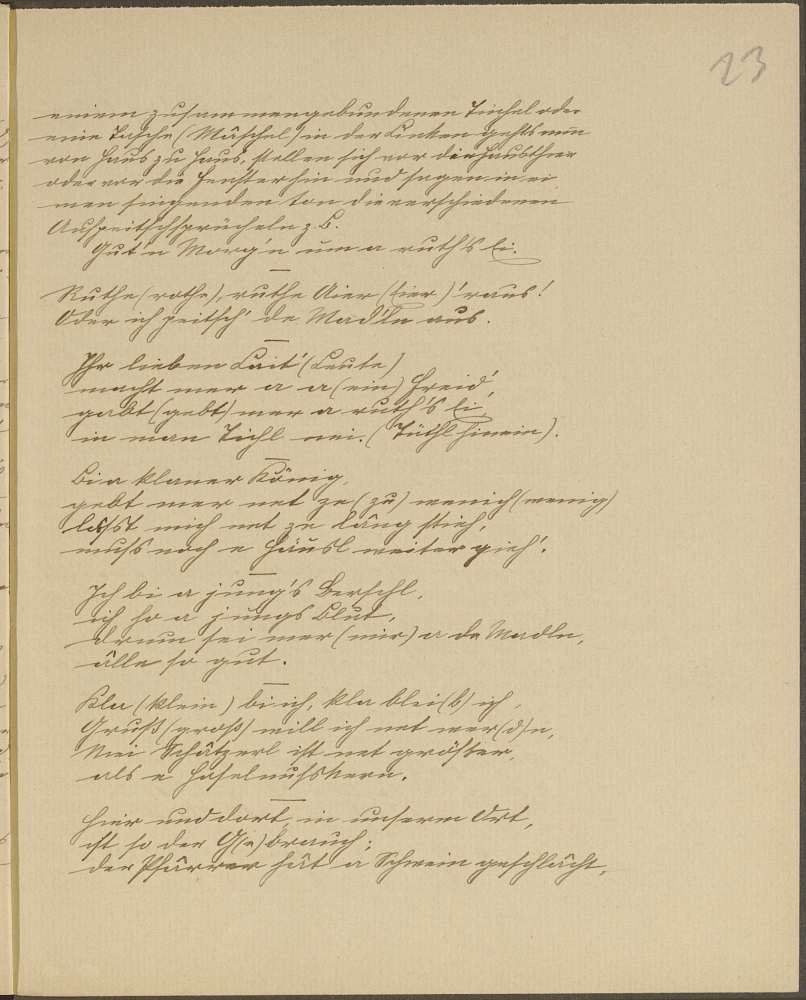 23
einem zusammengebundenen Tüchel oder
eine Tasche (Mäschel) in der Linken gehts nun
von Haus zu Haus, stellen sich vor die Hausthür
oder vor die Fenster hin und sagen in ei
nem singenden Ton die verschiedenen
Auspeitschsprücheln z. B.
Gut'n Morg'n um a ruth's Ei.
Ruthe (rothe), ruthe Aier (Eier) 'raus!
Oder ich peitsch' de Madl'n aus.
Ihr lieben Lait' (Leute)
macht mer a a (ein) Freid',
gabt (gebt) mer a ruth's Ei
in man Tichl nei. (Tüchl hinein).
Bi a klaner König,
gebt mer net ze (zu) wenich (wenig)
lässt mich net ze lang stieh',
muss noch e Häusl weiter gieh'.
Ich bi a jung's Berschl,
ich ho a jungs Blut,
drum sei mer (mir) a de Madln,
alle so gut.
Kla (klein) bi ich, kla blei(b) ich,
Gruß (groß) will ich net wer(d)n,
Mei Schätzerl ist net größer,
als e Haselnusskern.
Hier und dort, in unserm Ort,
ist so der G(e)brauch;
der Pfarrer hat a Schwein geschlacht,